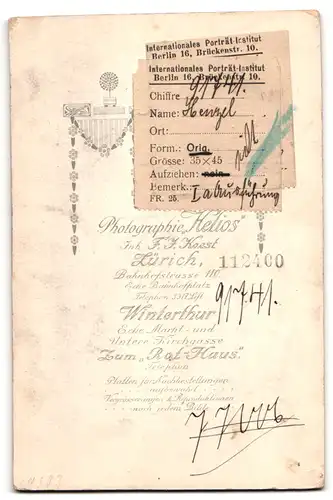 Internationales Porträt-Institut
Berlin 16, Brückenstr. 10.
Internationales Porträt-Institut
Berlin 16, Brückenstr. 10.
Chiffre 91741.
Name: Henzel
Ort:
Form.: Orig.
Grösse: 35×45
Aufziehen: nein
Bemerk. Ia Ausführung
FR. 25.
Photographie „Helios"
Inh. F. J. Kost
Zürich,
112400
Bahnhofstrasse 110
Ecke Bahnhofplatz
Telephon Lift
91741.
Winterthur
Ecke Markt- und
Untere Kirchgasse
Zum „Rat-Haus".
Telephon
Platten für Nachbestellungen
aufbewahrt
Vergrösserungen & Reproduktionen
nach jedem Bilde